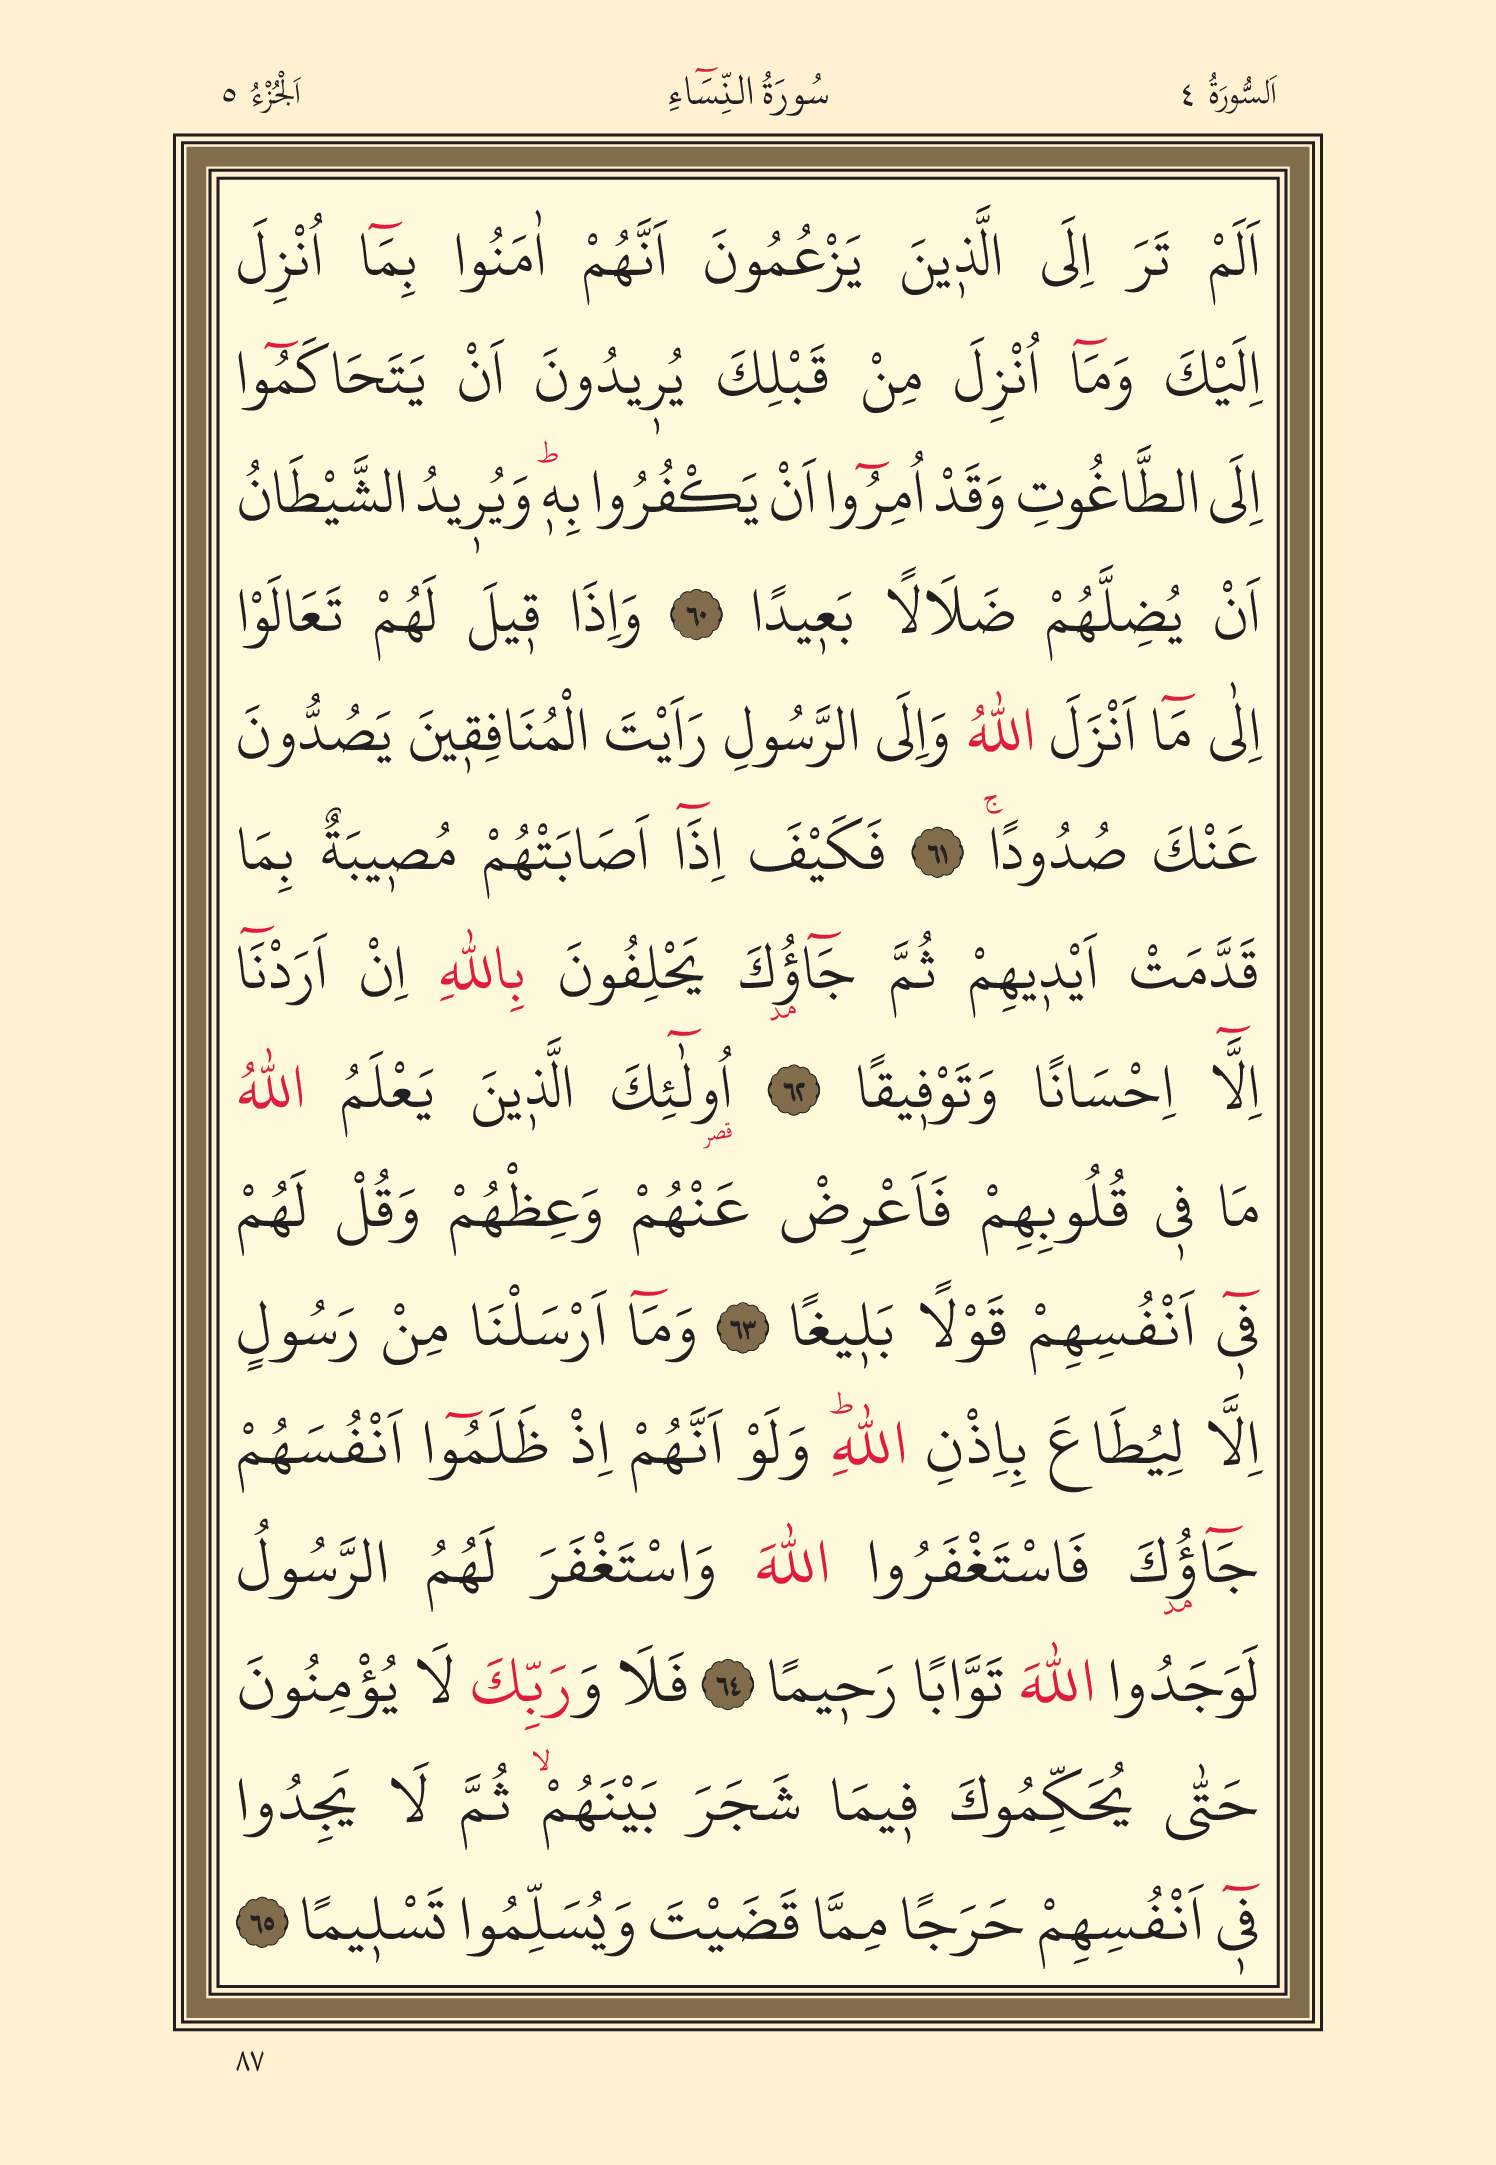 اَلسُّورَةُ ٤ سُورَةُ النِّسَٓاءِ اَلْجُزْءُ ٥
اَلَمْ تَرَ اِلَى الَّذ۪ينَ يَزْعُمُونَ اَنَّهُمْ اٰمَنُوا بِمَٓا اُنْزِلَ
اِلَيْكَ وَمَٓا اُنْزِلَ مِنْ قَبْلِكَ يُر۪يدُونَ اَنْ يَتَحَاكَمُٓوا
اِلَى الطَّاغُوتِ وَقَدْ اُمِرُٓوا اَنْ يَكْفُرُوا بِه۪ۜ وَيُر۪يدُ الشَّيْطَانُ
اَنْ يُضِلَّهُمْ ضَلَالًا بَع۪يدًا ﴿٦٠﴾ وَاِذَا ق۪يلَ لَهُمْ تَعَالَوْا
اِلٰى مَٓا اَنْزَلَ اللّٰهُ وَاِلَى الرَّسُولِ رَاَيْتَ الْمُنَافِق۪ينَ يَصُدُّونَ
عَنْكَ صُدُودًاۚ ﴿٦١﴾ فَكَيْفَ اِذَٓا اَصَابَتْهُمْ مُص۪يبَةٌ بِمَا
قَدَّمَتْ اَيْد۪يهِمْ ثُمَّ جَٓاؤُ۫كَ يَحْلِفُونَ بِاللّٰهِ اِنْ اَرَدْنَٓا
مد
اِلَّٓا اِحْسَانًا وَتَوْف۪يقًا ﴿٦٢﴾ اُولٰٓئِكَ الَّذ۪ينَ يَعْلَمُ اللّٰهُ
قصر
مَا ف۪ي قُلُوبِهِمْ فَاَعْرِضْ عَنْهُمْ وَعِظْهُمْ وَقُلْ لَهُمْ
ف۪ٓي اَنْفُسِهِمْ قَوْلًا بَل۪يغًا ﴿٦٣﴾ وَمَٓا اَرْسَلْنَا مِنْ رَسُولٍ
اِلَّا لِيُطَاعَ بِاِذْنِ اللّٰهِۜ وَلَوْ اَنَّهُمْ اِذْ ظَلَمُٓوا اَنْفُسَهُمْ
جَٓاؤُ۫كَ فَاسْتَغْفَرُوا اللّٰهَ وَاسْتَغْفَرَ لَهُمُ الرَّسُولُ
مد
لَوَجَدُوا اللّٰهَ تَوَّابًا رَح۪يمًا ﴿٦٤﴾ فَلَا وَرَبِّكَ لَا يُؤْمِنُونَ
حَتّٰى يُحَكِّمُوكَ ف۪يمَا شَجَرَ بَيْنَهُمْۙ ثُمَّ لَا يَجِدُوا
ف۪ٓي اَنْفُسِهِمْ حَرَجًا مِمَّا قَضَيْتَ وَيُسَلِّمُوا تَسْل۪يمًا ﴿٦٥﴾
٨٧